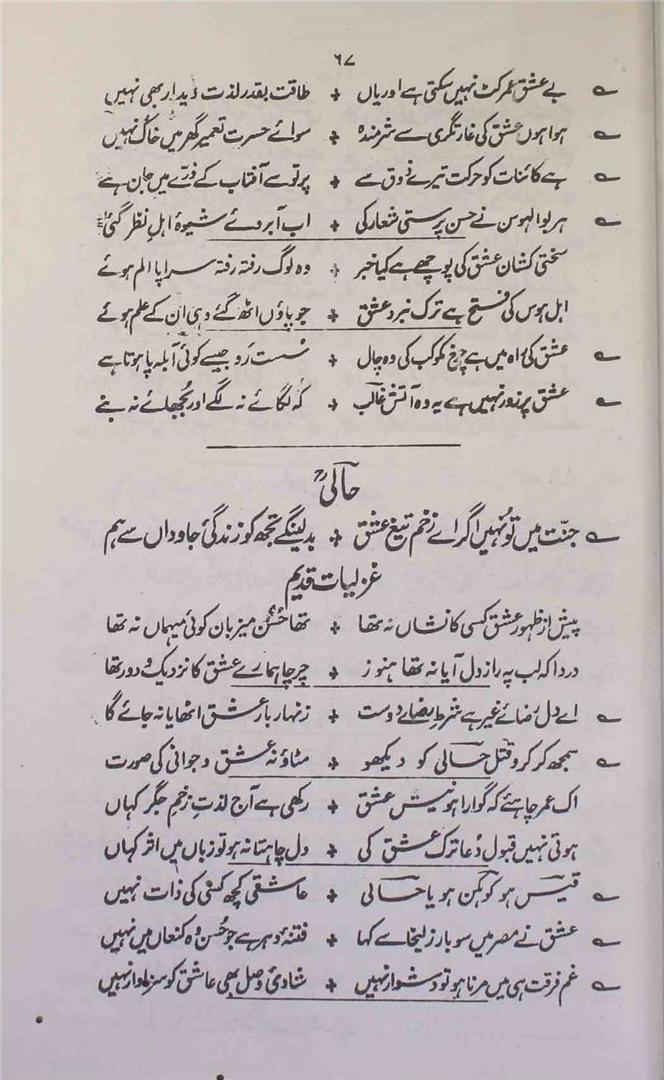 ۶۷
بے عشق عمر کٹ نہیں سکتی ہے اور یاں ؞ طاقت بقدر لذت دیدار بھی نہیں
ہوا ہوں عشق کی غارتگری سے شرمندہ ؞ سوائے حسرت تعمیر گھر میں خاک نہیں
ہے کائنات کو حرکت تیرے ذوق سے ؞ پرتو سے آفتاب کے ذرّے میں جان ہے
ہر بوالہوس نے حسن پرستی شعار کی ؞ اب آبروئے شیوۂ اہلِ نظر گئی
سختی کشان عشق کی پوچھے ہے کیا خبر ؞ وہ لوگ رفتہ رفتہ سراپا الم ہوئے
اہل ہوس کی فتح ہے ترک نبرد عشق ؞ جو پاؤں اٹھ گئے وہی ان کے علم ہوئے
عشق کی راہ میں ہے چرخ مکوکب کی وہ چال ؞ سُست رَو جیسے کوئی آبلہ پا ہوتا ہے
عشق پر زور نہیں ہے یہ وہ آتش غالب ؞ کہ لگائے نہ لگے اور بُجھائے نہ بنے
حالیؒ
جنّت میں تو نہیں اگر اے زخم تیغ عشق ؞ بدلینگے تجھ کو زندگیٔ جاوداں سے ہم
غزلیات قدیم
پیش از ظہور عشق کسی کا نشاں نہ تھا ؞ تھا حُسن میزبان کوئی میہماں نہ تھا
دردا کہ لب پہ راز دل آیا نہ تھا ہنوز ؞ چرچا ہمارے عشق کا نزدیک و دور تھا
اے دل رضائے غیر ہے شرطِ رضائے دوست ؞ زنہار بار عشق اٹھایا نہ جائے گا
سمجھ کر کرو قتل حالی کو دیکھو ؞ مٹاؤ نہ عشق و جوانی کی صورت
اک عمر چاہئے کہ گوارا ہو نیش عشق ؞ رکھی ہے آج لذتِ زخمِ جگر کہاں
ہوتی نہیں قبول دُعا ترک عشق کی ؞ دل چاہتا نہ ہو تو زباں میں اثر کہاں
قیس ہو کوہکن ہو یا حالی ؞ عاشقی کچھ کسی کی ذات نہیں
عشق نے مصر میں سو بار زلیخا سے کہا ؞ فتنۂ دہر ہے جو حُسن وہ کنعاں میں نہیں
غم فرقت ہی میں مرنا ہو تو دشوار نہیں ؞ شادیٔ وصل بھی عاشق کو سزاوار نہیں